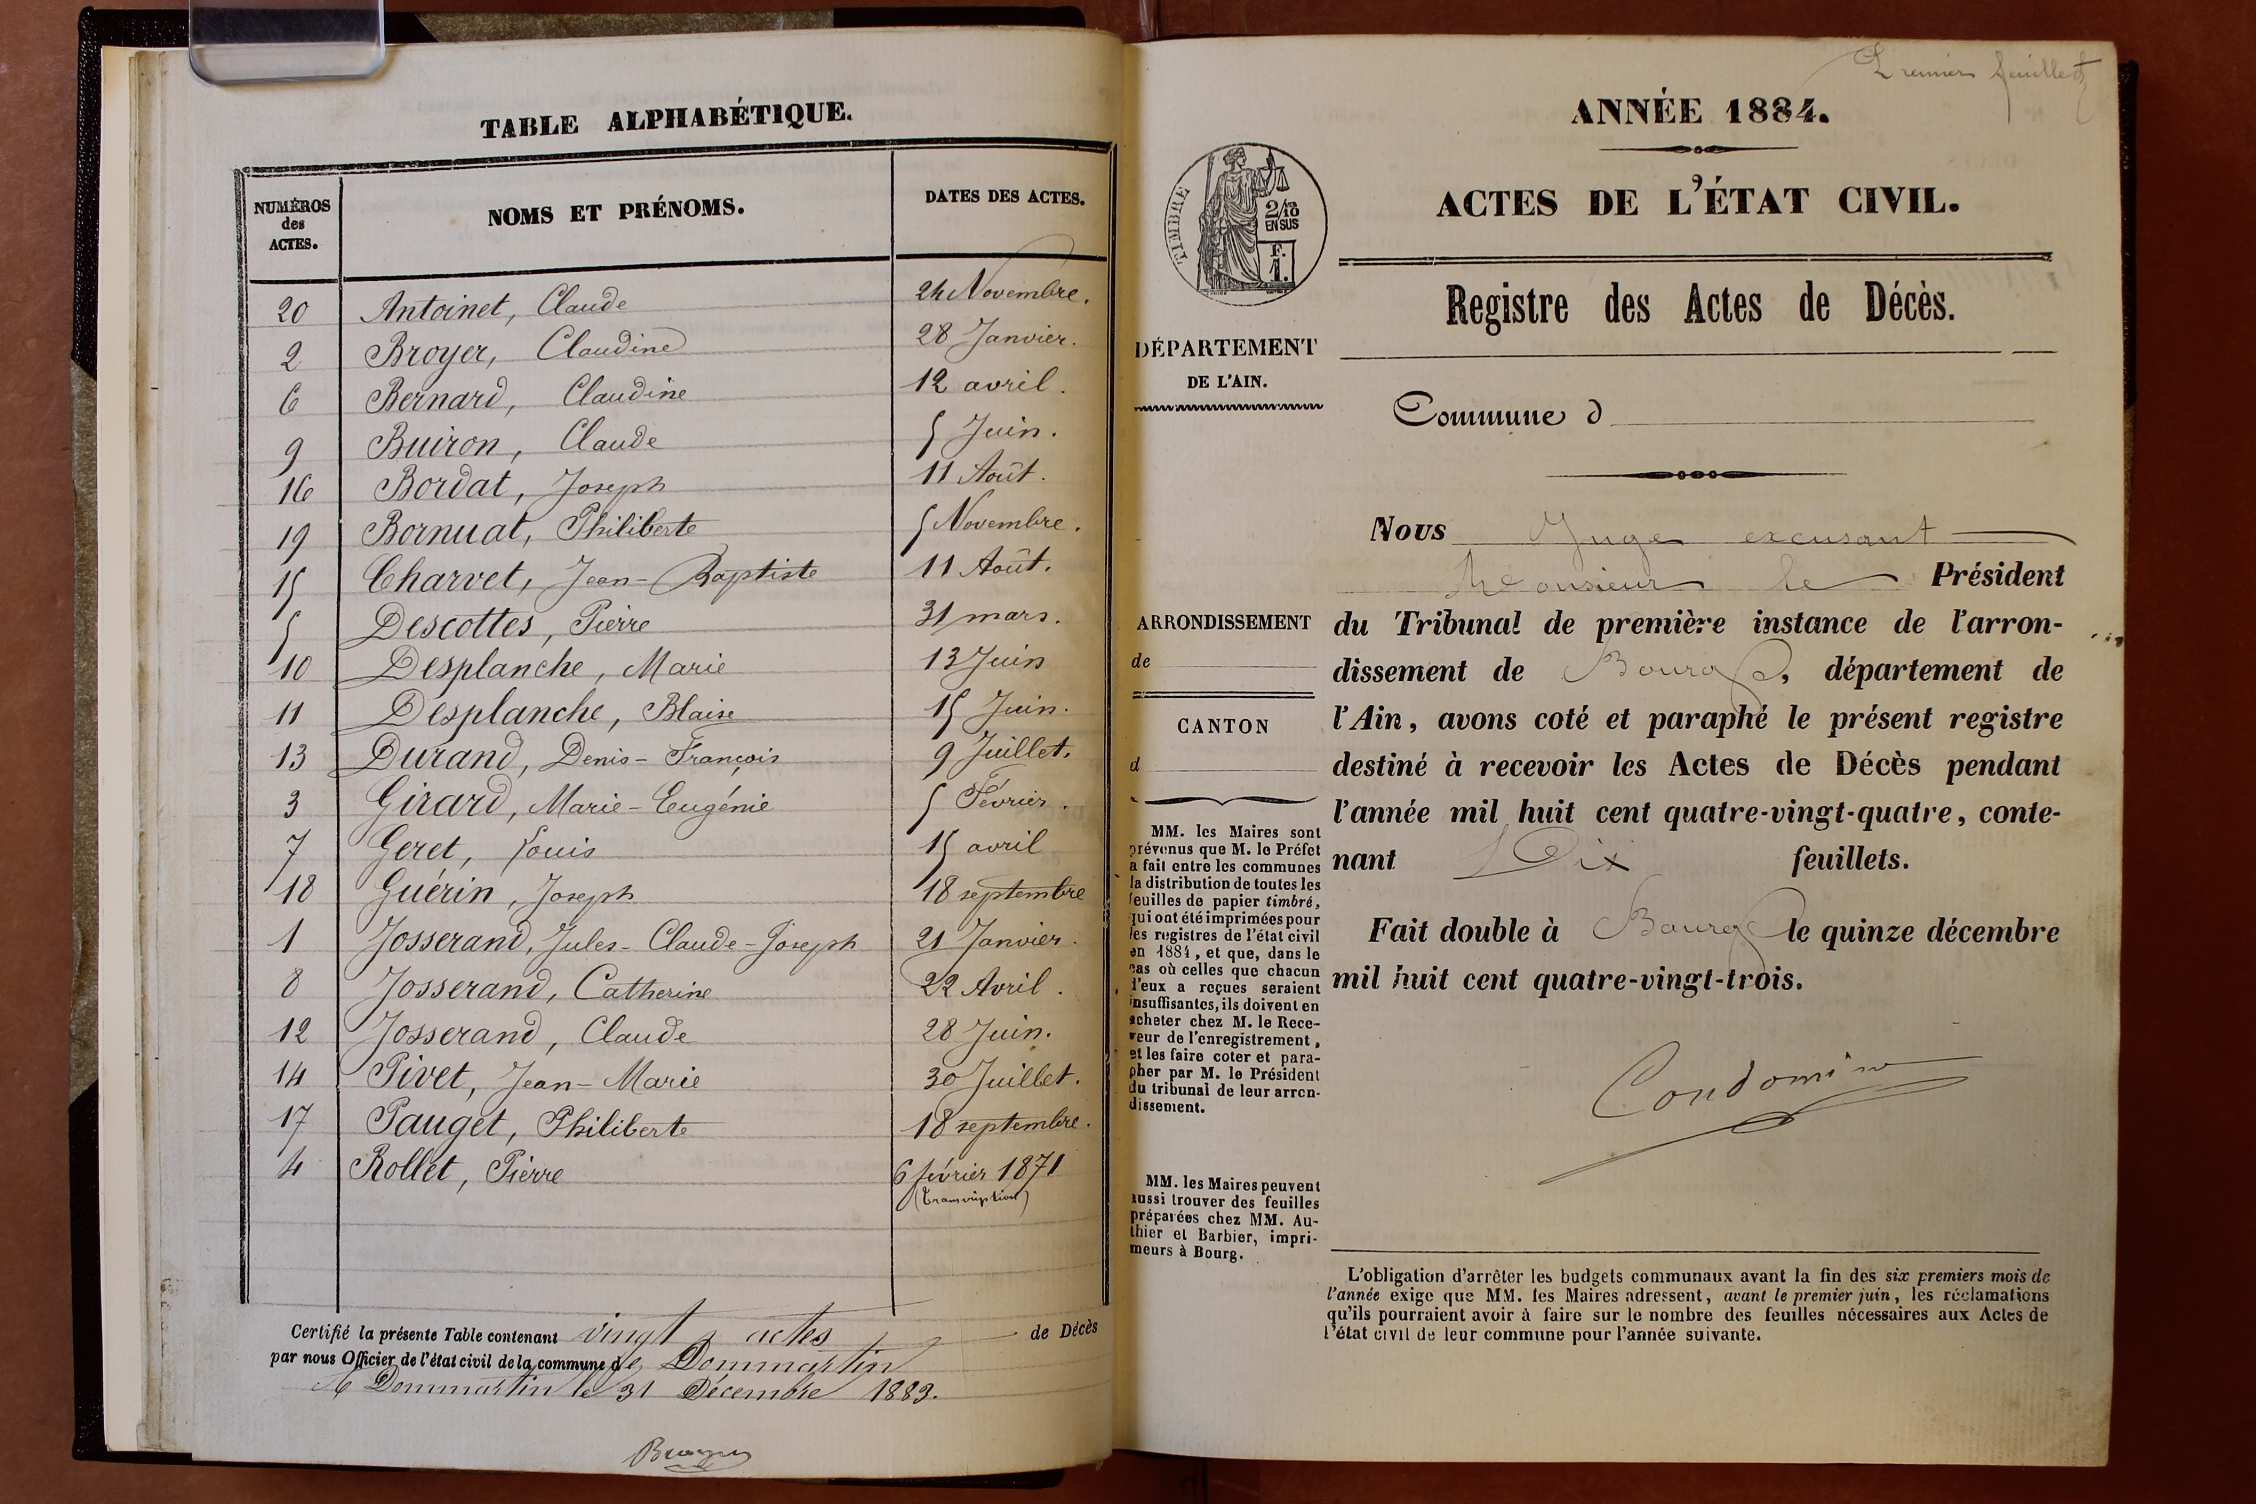 TABLE ALPHABÉTIQUE.
NUMÉROS des ACTES. NOMS ET PRÉNOMS. DATES DES ACTES.
20 Antoinet, Claude 24 Novembre.
2 Broyer, Claudine 28 Janvier.
6 Bernard, Claudine 12 avril.
9 Buiron, Claude 5 Juin.
16 Bordat, Joseph 11 Août.
19 Bornuat, Philiberte 5 Novembre.
15 Charvet, Jean-Baptiste 11 Août.
5 Descottes, Pierre 31 mars.
10 Desplanche, Marie 13 Juin
11 Desplanche, Blaise 15 Juin.
13 Durand, Denis-François 9 Juillet.
3 Girard, Marie-Eugénie 5 Février.
7 Geret, Louis 15 avril
18 Guérin, Joseph 18 septembre
1 Josserand, Jules-Claude-Joseph 21 Janvier.
8 Josserand, Catherine 22 Avril.
12 Josserand, Claude 28 Juin.
14 Pivet, Jean-Marie 30 Juillet.
17 Pauget, Philiberte 18 septembre.
4 Rollet, Pierre 6 février 1871
(transcription)
Certifié la présente Table contenant vingt actes de Décès
par nous Officier de l'état civil de la commune de Dommartin
A Dommartin le 31 Décembre 1883.
Premier feuillet
ANNÉE 1884.
ACTES DE L'ÉTAT CIVIL.
TIMBRE
2/10
EN SUS
F.
1.
Registre des Actes de Décès.
DÉPARTEMENT
DE L'AIN.
Commune d
Nous Juge excusant
Monsieur le Président
du Tribunal de première instance de l'arron-
dissement de Bourg, département de
l'Ain, avons coté et paraphé le présent registre
destiné à recevoir les Actes de Décès pendant
l'année mil huit cent quatre-vingt-quatre, conte-
nant Dix feuillets.
Fait double à Bourg le quinze décembre
mil huit cent quatre-vingt-trois.
Condomin
ARRONDISSEMENT
de
CANTON
d
MM. les Maires sont
prévenus que M. le Préfet
a fait entre les communes
la distribution de toutes les
feuilles de papier timbré,
qui ont été imprimées pour
les registres de l'état civil
en 1884, et que, dans le
cas où celles que chacun
d'eux a reçues seraient
insuffisantes, ils doivent en
acheter chez M. le Rece-
veur de l'enregistrement,
et les faire coter et para-
pher par M. le Président
du tribunal de leur arron-
dissement.
MM. les Maires peuvent
aussi trouver des feuilles
préparées chez MM. Au-
thier et Barbier, impri-
meurs à Bourg.
L'obligation d'arrêter les budgets communaux avant la fin des six premiers mois de
l'année exige que MM. les Maires adressent, avant le premier juin, les réclamations
qu'ils pourraient avoir à faire sur le nombre des feuilles nécessaires aux Actes de
l'état civil de leur commune pour l'année suivante.